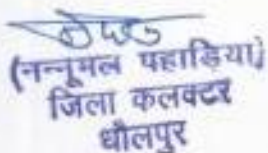 (नन्नूमल पहाडिया)
जिला कलक्टर
धौलपुर